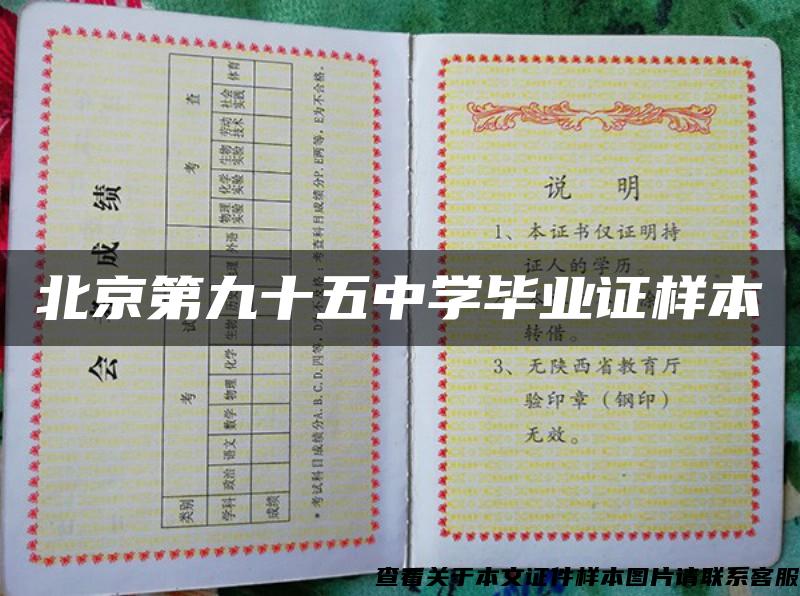 北京第九十五中学毕业证样本
会考成绩
类别 考试 考查
学科 政治 语文 数学 物理 化学 生物 历史 地理 外语 物理实验 化学实验 生物实验 劳动技术 社会实践 体育
成绩
*考试科目成绩分A、B、C、D、四等，D为不及格；考查科目成绩分P、E两等，E为不合格。
说 明
1、本证书仅证明持
证人的学历。
转借。
3、无陕西省教育厅
验印章（钢印）
无效。
查看关于本文证件样本图片请联系客服